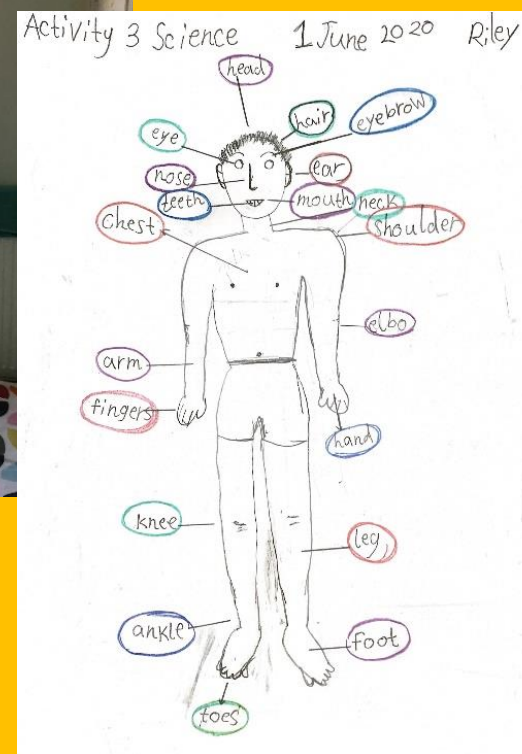 Activity 3 Science 1 June 2020 Riley
head
hair
eyebrow
eye
ear
nose
teeth
mouth
neck
chest
shoulder
elbo
arm
fingers
hand
knee
leg
ankle
foot
toes